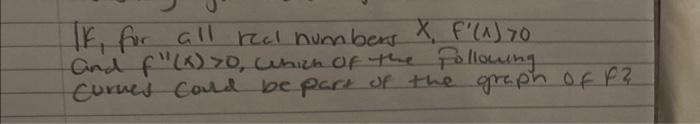 IF, for all real numbers X, F'(x)>0
and f"(x)>0, which of the following
curves could be part of the graph of f?